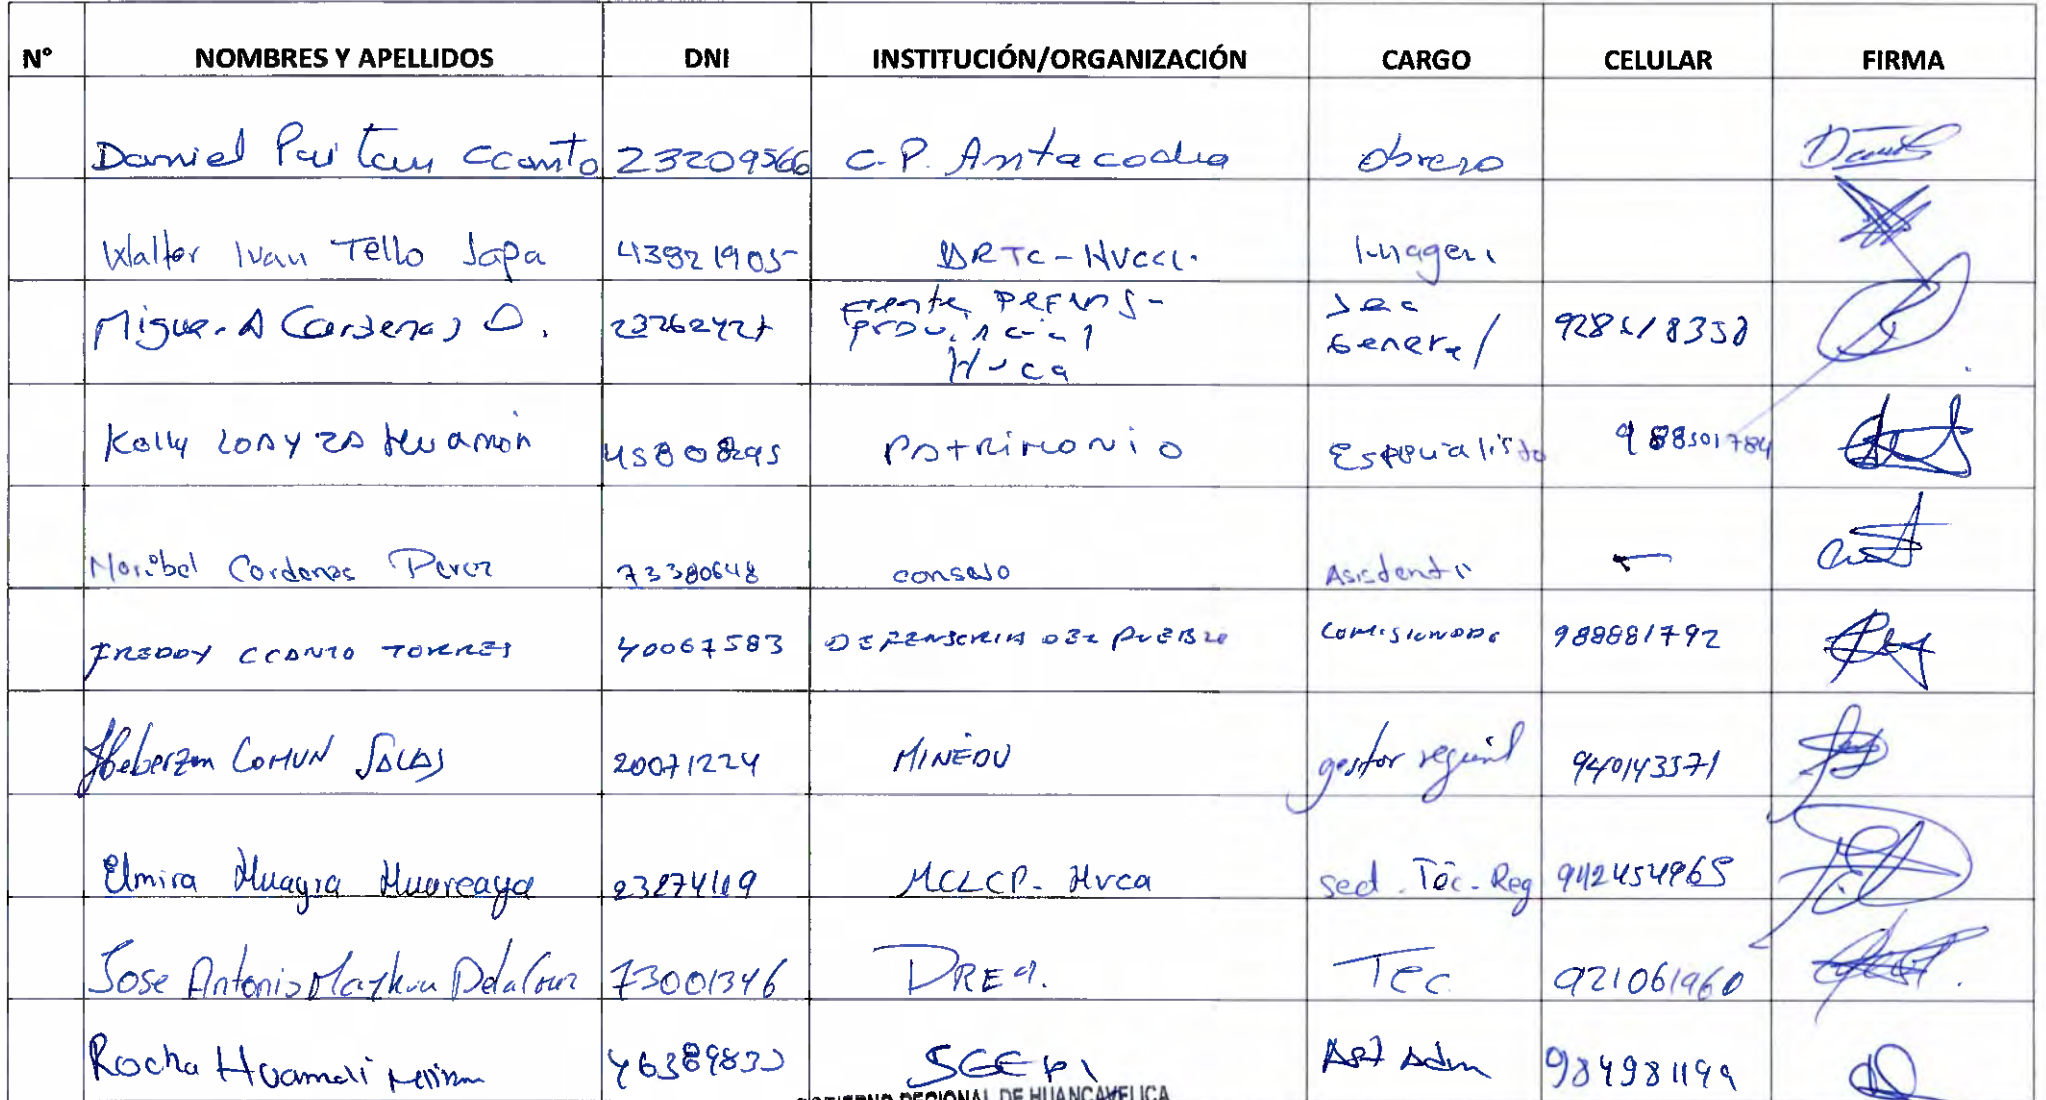 N° NOMBRES Y APELLIDOS DNI INSTITUCIÓN/ORGANIZACIÓN CARGO CELULAR FIRMA
Daniel Paitan Ccanto 23209566 C.P. Antacocha Obrero
Walter Ivan Tello Japa 43921905 DRTC-HVCA. Imagen
Miguel A Cardenas O. 23262427 Frente Defens-
provincial
Hvca Sec
General
Kelly Loayza Huaman 45808295 Patrimonio Especialista 988501784
Maribel Cardenas Perez 73380648 consejo Asistente -
FREDDY CCANTO TORRES 40067583 DEFENSORIA DEL PUEBLO COMISIONADO 988881792
Heberzon COMUN SALAS 20071224 MINEDU gestor regional 940143371
Elmira Huayra 23274119 MCLCP-Hvca Tec. Reg 942454965
Jose Antonio De la Cruz 73001346 DREH. Tec. 921061960
Rocha Huamali SGEPI Ast Adm 984981199
GOBIERNO REGIONAL DE HUANCAVELICA